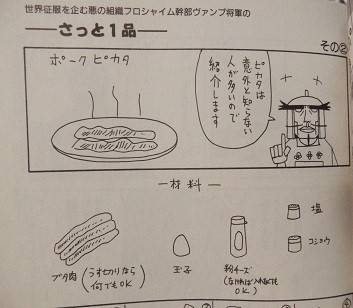 世界征服を企む悪の組織フロシャイム幹部ヴァンプ将軍の
さっと1品
その②
ポークピカタ
ピカタは
意外と知らない
人が多いので
紹介します
材料
ブタ肉(うすぎりなら
何でもOK)
玉子
粉チーズ
(なければ入れなくても
OK)
塩
コショウ